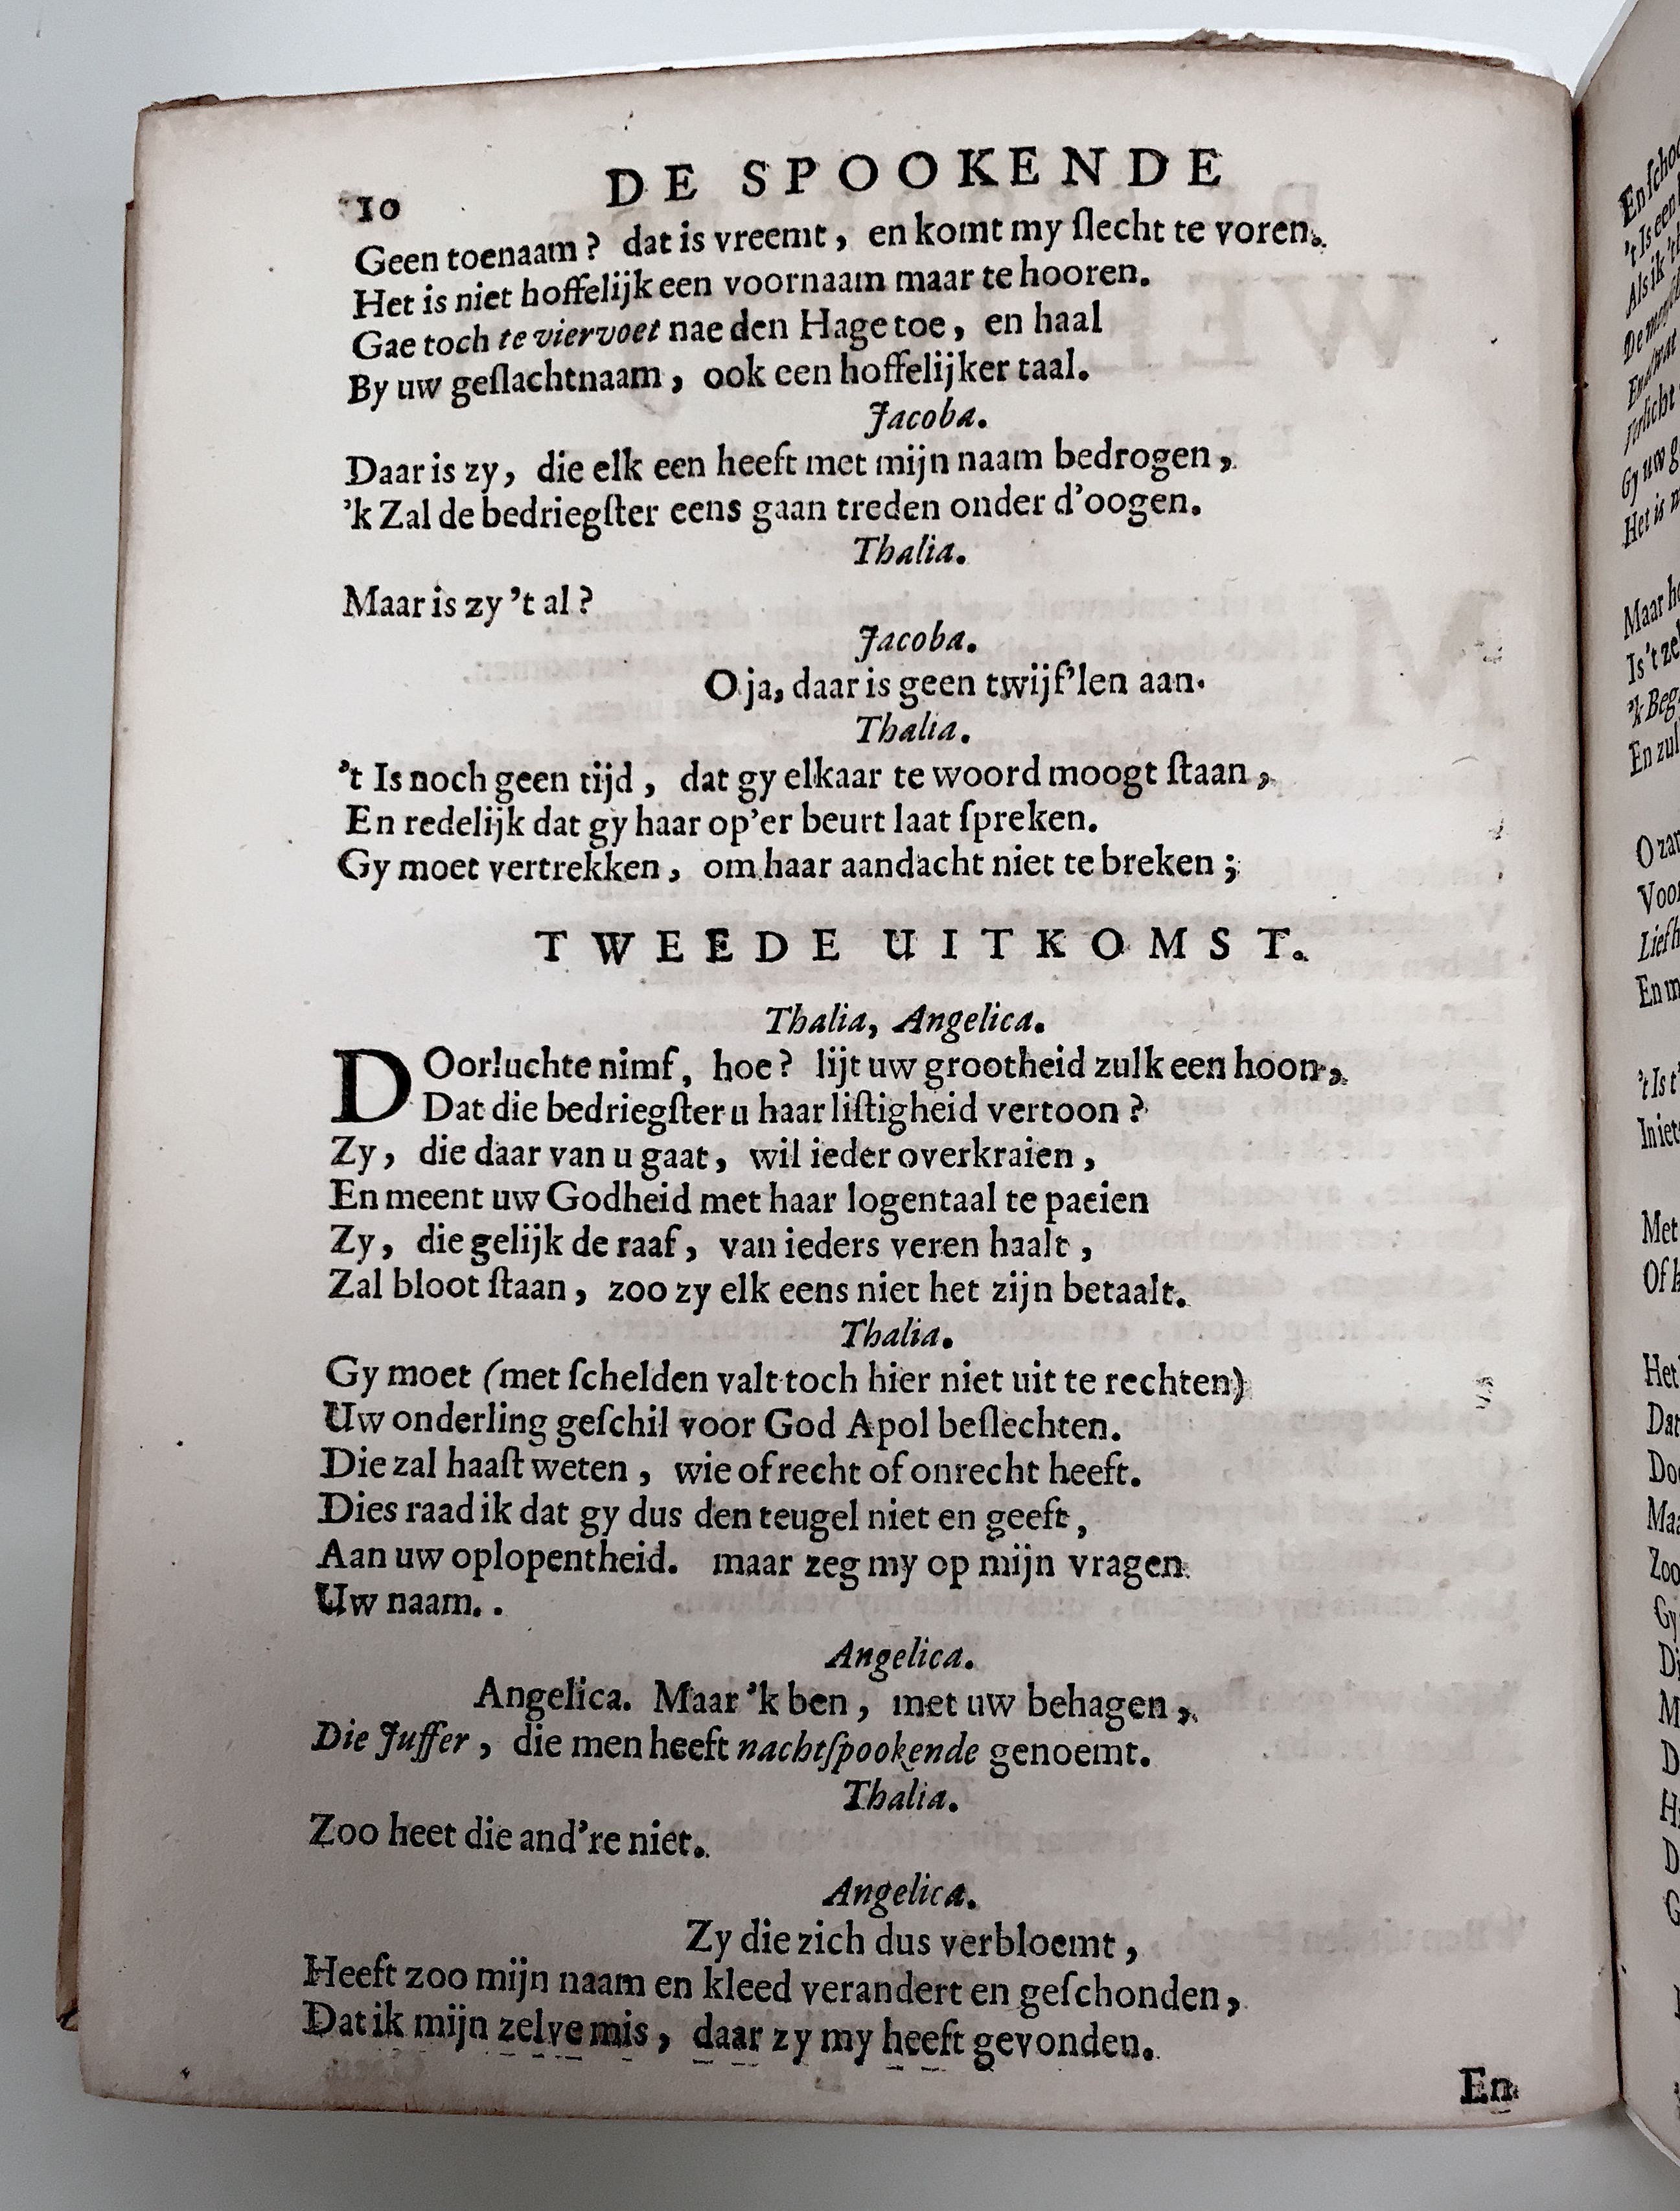 DE SPOOKENDE
10
Geen toenaam? dat is vreemt, en komt my ſlecht te voren.
Het is niet hoffelijk een voornaam maar te hooren.
Gae toch te viervoet nae den Hage toe, en haal
By uw geſlachtnaam, ook een hoffelijker taal.
Jacoba.
Daar is zy, die elk een heeft met mijn naam bedrogen,
'k Zal de bedriegſter eens gaan treden onder d'oogen.
Thalia.
Maar is zy 't al?
Jacoba.
O ja, daar is geen twijf'len aan.
Thalia.
't Is noch geen tijd, dat gy elkaar te woord moogt ſtaan,
En redelijk dat gy haar op'er beurt laat ſpreken.
Gy moet vertrekken, om haar aandacht niet te breken;
TWEEDE UITKOMST.
Thalia, Angelica.
DOorluchte nimf, hoe? lijt uw grootheid zulk een hoon,
Dat die bedriegſter u haar liſtigheid vertoon?
Zy, die daar van u gaat, wil ieder overkraien,
En meent uw Godheid met haar logentaal te paeien
Zy, die gelijk de raaf, van ieders veren haalt,
Zal bloot ſtaan, zoo zy elk eens niet het zijn betaalt.
Thalia.
Gy moet (met ſchelden valt toch hier niet uit te rechten)
Uw onderling geſchil voor God Apol beſlechten.
Die zal haaſt weten, wie of recht of onrecht heeft.
Dies raad ik dat gy dus den teugel niet en geeft,
Aan uw oplopentheid. maar zeg my op mijn vragen
Uw naam..
Angelica.
Angelica. Maar 'k ben, met uw behagen,
Die Juffer, die men heeft nachtſpookende genoemt.
Thalia.
Zoo heet die and're niet.
Angelica.
Zy die zich dus verbloemt,
Heeft zoo mijn naam en kleed verandert en geſchonden,
Dat ik mijn zelve mis, daar zy my heeft gevonden.
En